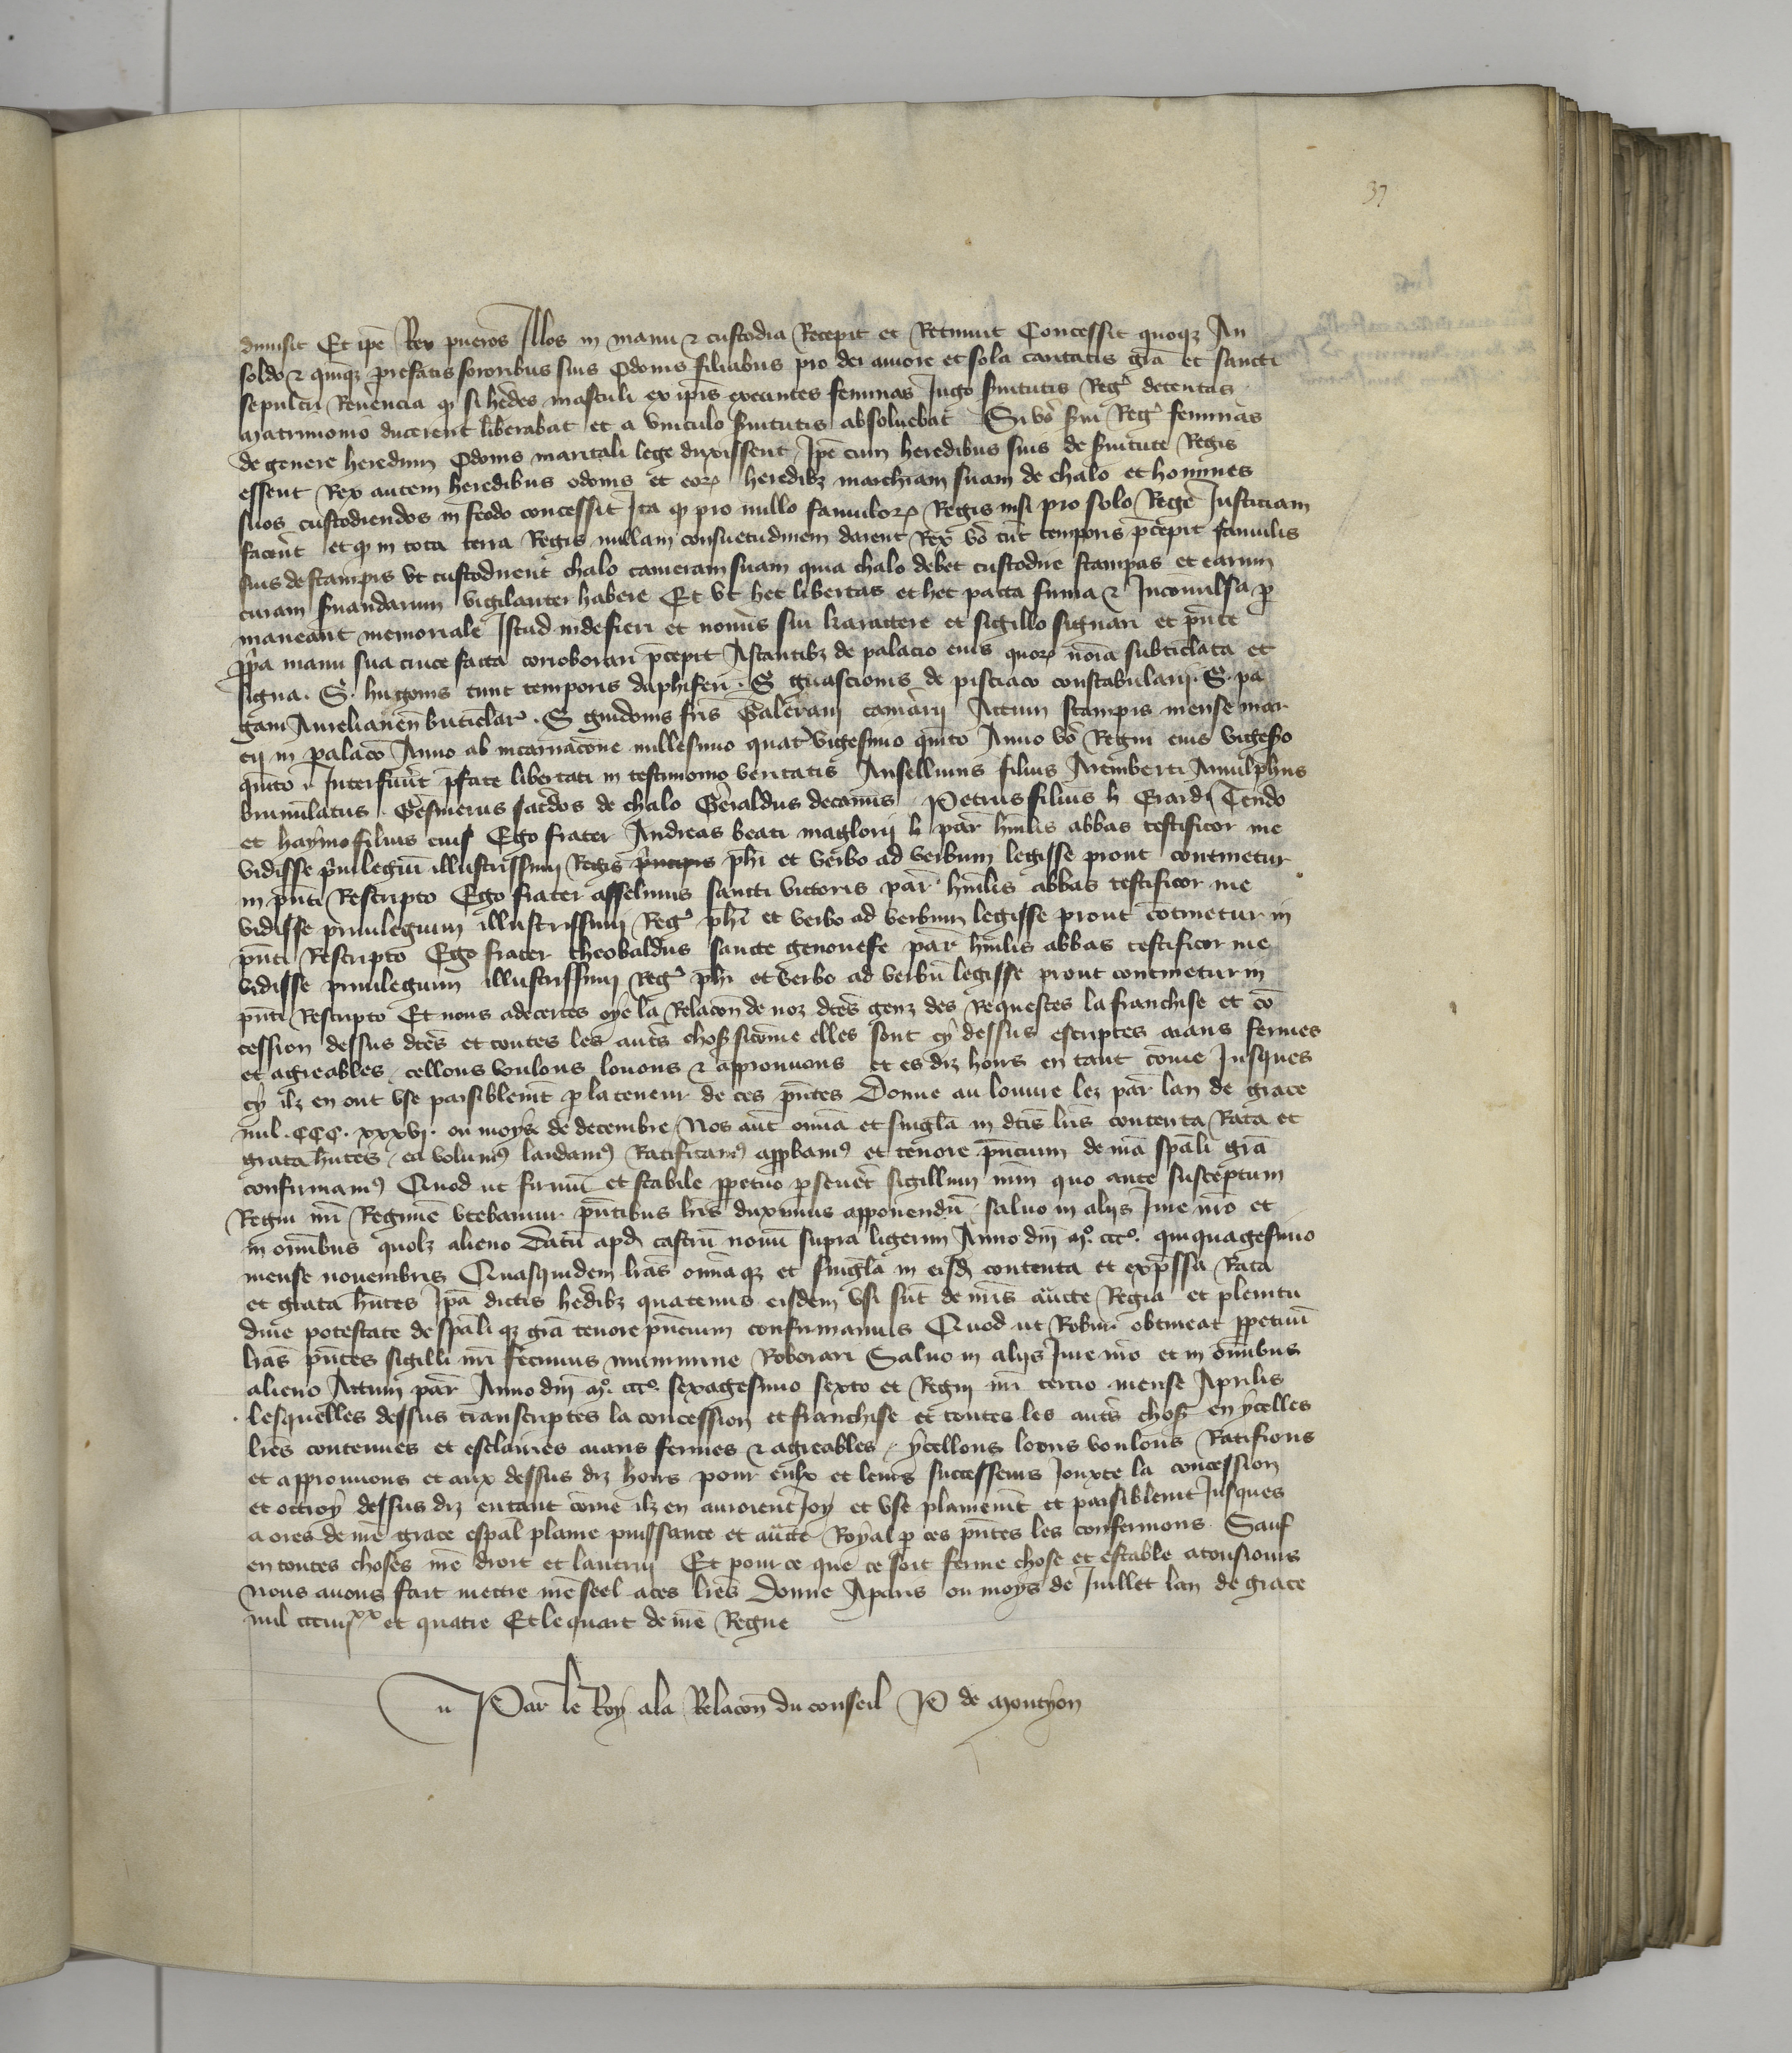 37
dimisit Et ipē Rex pueros Illos in manu ⁊ custodia Recepit et Retinuit Concessit quoqꝫ An
soldo ⁊ quinqꝫ prefatis sororibus suis Odonis filiabus pro dei amore et sola caritatis grā et sancti
sepulcri Reuencia qꝫ si hedes masculi ex ipīs exeuntes feminas Iugo suitutis Regꝰ detentas
matrimonio ducerent liberabat et a vinculo suitutis absoluebat Si vo sui Regꝰ feminas
de genere heredum Odonis maritali lege duxissent Ipē cum heredibus suis de suitute Regis
essent Rex autem heredibus odonis et eoꝝ heredibꝫ marchiam suam de chalo et homines
suos custodiendos in feodo concessit Ita qꝫ pro nullo famuloꝝ Regis nisi pro solo Rege Iusticiam
facerēt et qꝫ in tota terra Regis nullam consuetudinem darent Rex vo tūc temporis p̄cepit famulis
suis de stampis vt custodirent chalo cameram suam quia chalo debet custodire stampas et earum
curam suandarum vigilanter habere Et vt hec libertas et hec pacta firma ⁊ Inconuulsa p̱
maneant memoriale Istud inde fieri et nomīs sui karactere et sigillo signari et p̄nte
ppꝛia manu sua cruce facta corroborari p̄cepit Astantibꝫ de palacio eius quoꝝ noīa subtītlata et
signa . S . hugonis tunc temporis daphiferi . S guascionis de pisciaco constabularii . S . pa
gani Aurelianeñ buticlar . S guidonis fris Galerani camarii Actum stampis mense mar
cii in palaco Anno ab incarnacōne millesimo quatͬ vigesimo quīto Anno vo Regni eius vigeso
quīto . Interfuert p̄fate libertati in testimonio veritatis Ansellmus filius Aremberti Arnulphus
Gesmerus sacdos de chalo Geraldus decanus Petrus filius h Erardi Tendo
et haymo filius eius Ego frater Andreas beati maglorii h par hūilis abbas testificor me
vidisse puilegiū illustrissimi Regis p̄ncipis ph̄i et verbo ad verbum legisse prout continetur
in pn̄ti Rescripto Ego frater asselinus sancti victoris par hūilis abbas testificor me
vidisse priuilegium illustrissimi Regꝰ ph̄i et verbo ad verbum legisse prout cōtinetur in
pn̄ti Rescripto Ego frater theobaldus sancte genouefe par hūilis abbas testificor me
vidisse priuilegium illustrissimi Regꝰ ph̄i et verbo ad verbū legisse prout continetur in
pn̄ti Rescripto Et nous adecertes oye la Relacōn de noz dtēs genz des Requestes la franchise et cō
cession dessus dtēs et toutes les autͬs choses sicōme elles sont cy dessus escriptes aians fermes
et agreables cellons voulons louons ⁊ approuuons et es diz hoirs en tant cōme Iusques
cy ilz en ont vse paisiblemt p̱ la teneur de ces pn̄tes Donne au louure lez par lan de grace
mil . CCC . xxxvj . ou moys de decembre Nos aut oīma et singla in dtīs lrīs contenta Rata et
grata hntēs ea volumꝰ laudamꝰ Ratificamꝰ appbamꝰ et tenore pn̄cium de nr̄a spāli grā
confirmamꝰ Quod ut firmū et stabile ppetuo pseueret sigillum nrm̄ quo ante susceptum
Regni nrī Regimē vtebamur pn̄tibus lrīs duximus apponendū saluo in alijs Iure nro et
in oībus quolꝫ alieno Datū apd castrū nouū supra ligerim Anno dnī mͦ. cccͦ. quinquagesimo
mense nouembris Quasquidem lrās oīmaqꝫ et singla in eisd contenta et expssa Rata
et grata hntēs Ipā dictis hedibꝫ quatenus eisdem vsi sūt de nrīs aucte Regia et plenitu
dine potestate de spāli qꝫ grā tenore pn̄cium confirmamus Quod ut Robur obtineat ppetuū
lrās pn̄tes sigilli nrī fecimus munimine Roborari Saluo in alijs Iure nro et in oībus
alieno Actum par Anno dnī mͦ. cccͦ. sexagesimo sexto et Regni nrī tercio mense Aprilis
Lesquelles dessus transcriptes la concession et franchise et toutes les autͬs choses en ycelles
lrēs contenues et esclaircies aians fermes ⁊ agreables ycellons loons voulons Ratifions
et approuuons et aux dessus diz hoirs pour eulx et leurs successeurs Iouxte la concession
et ottroy dessus diz entant cōme ilz en auroient Ioy et vse plainemt et paisiblemt Iusques
a ores de nrē grace espāl plaine puissance et aucte Royal p̱ ces pn̄tes les confermons Sauf
en toutes choses nrē droit et lautrui Et pour ce que ce soit ferme chose et estable atousiours
Nous auons fait mettre nrē seel a ces lrēs Donne Aparis ou moys de Juillet lan de grace
mil ccciiijˣˣ et quatre Et le quart de nrē Regne
Par le Roy a la Relacōn du conseil P de Montyon